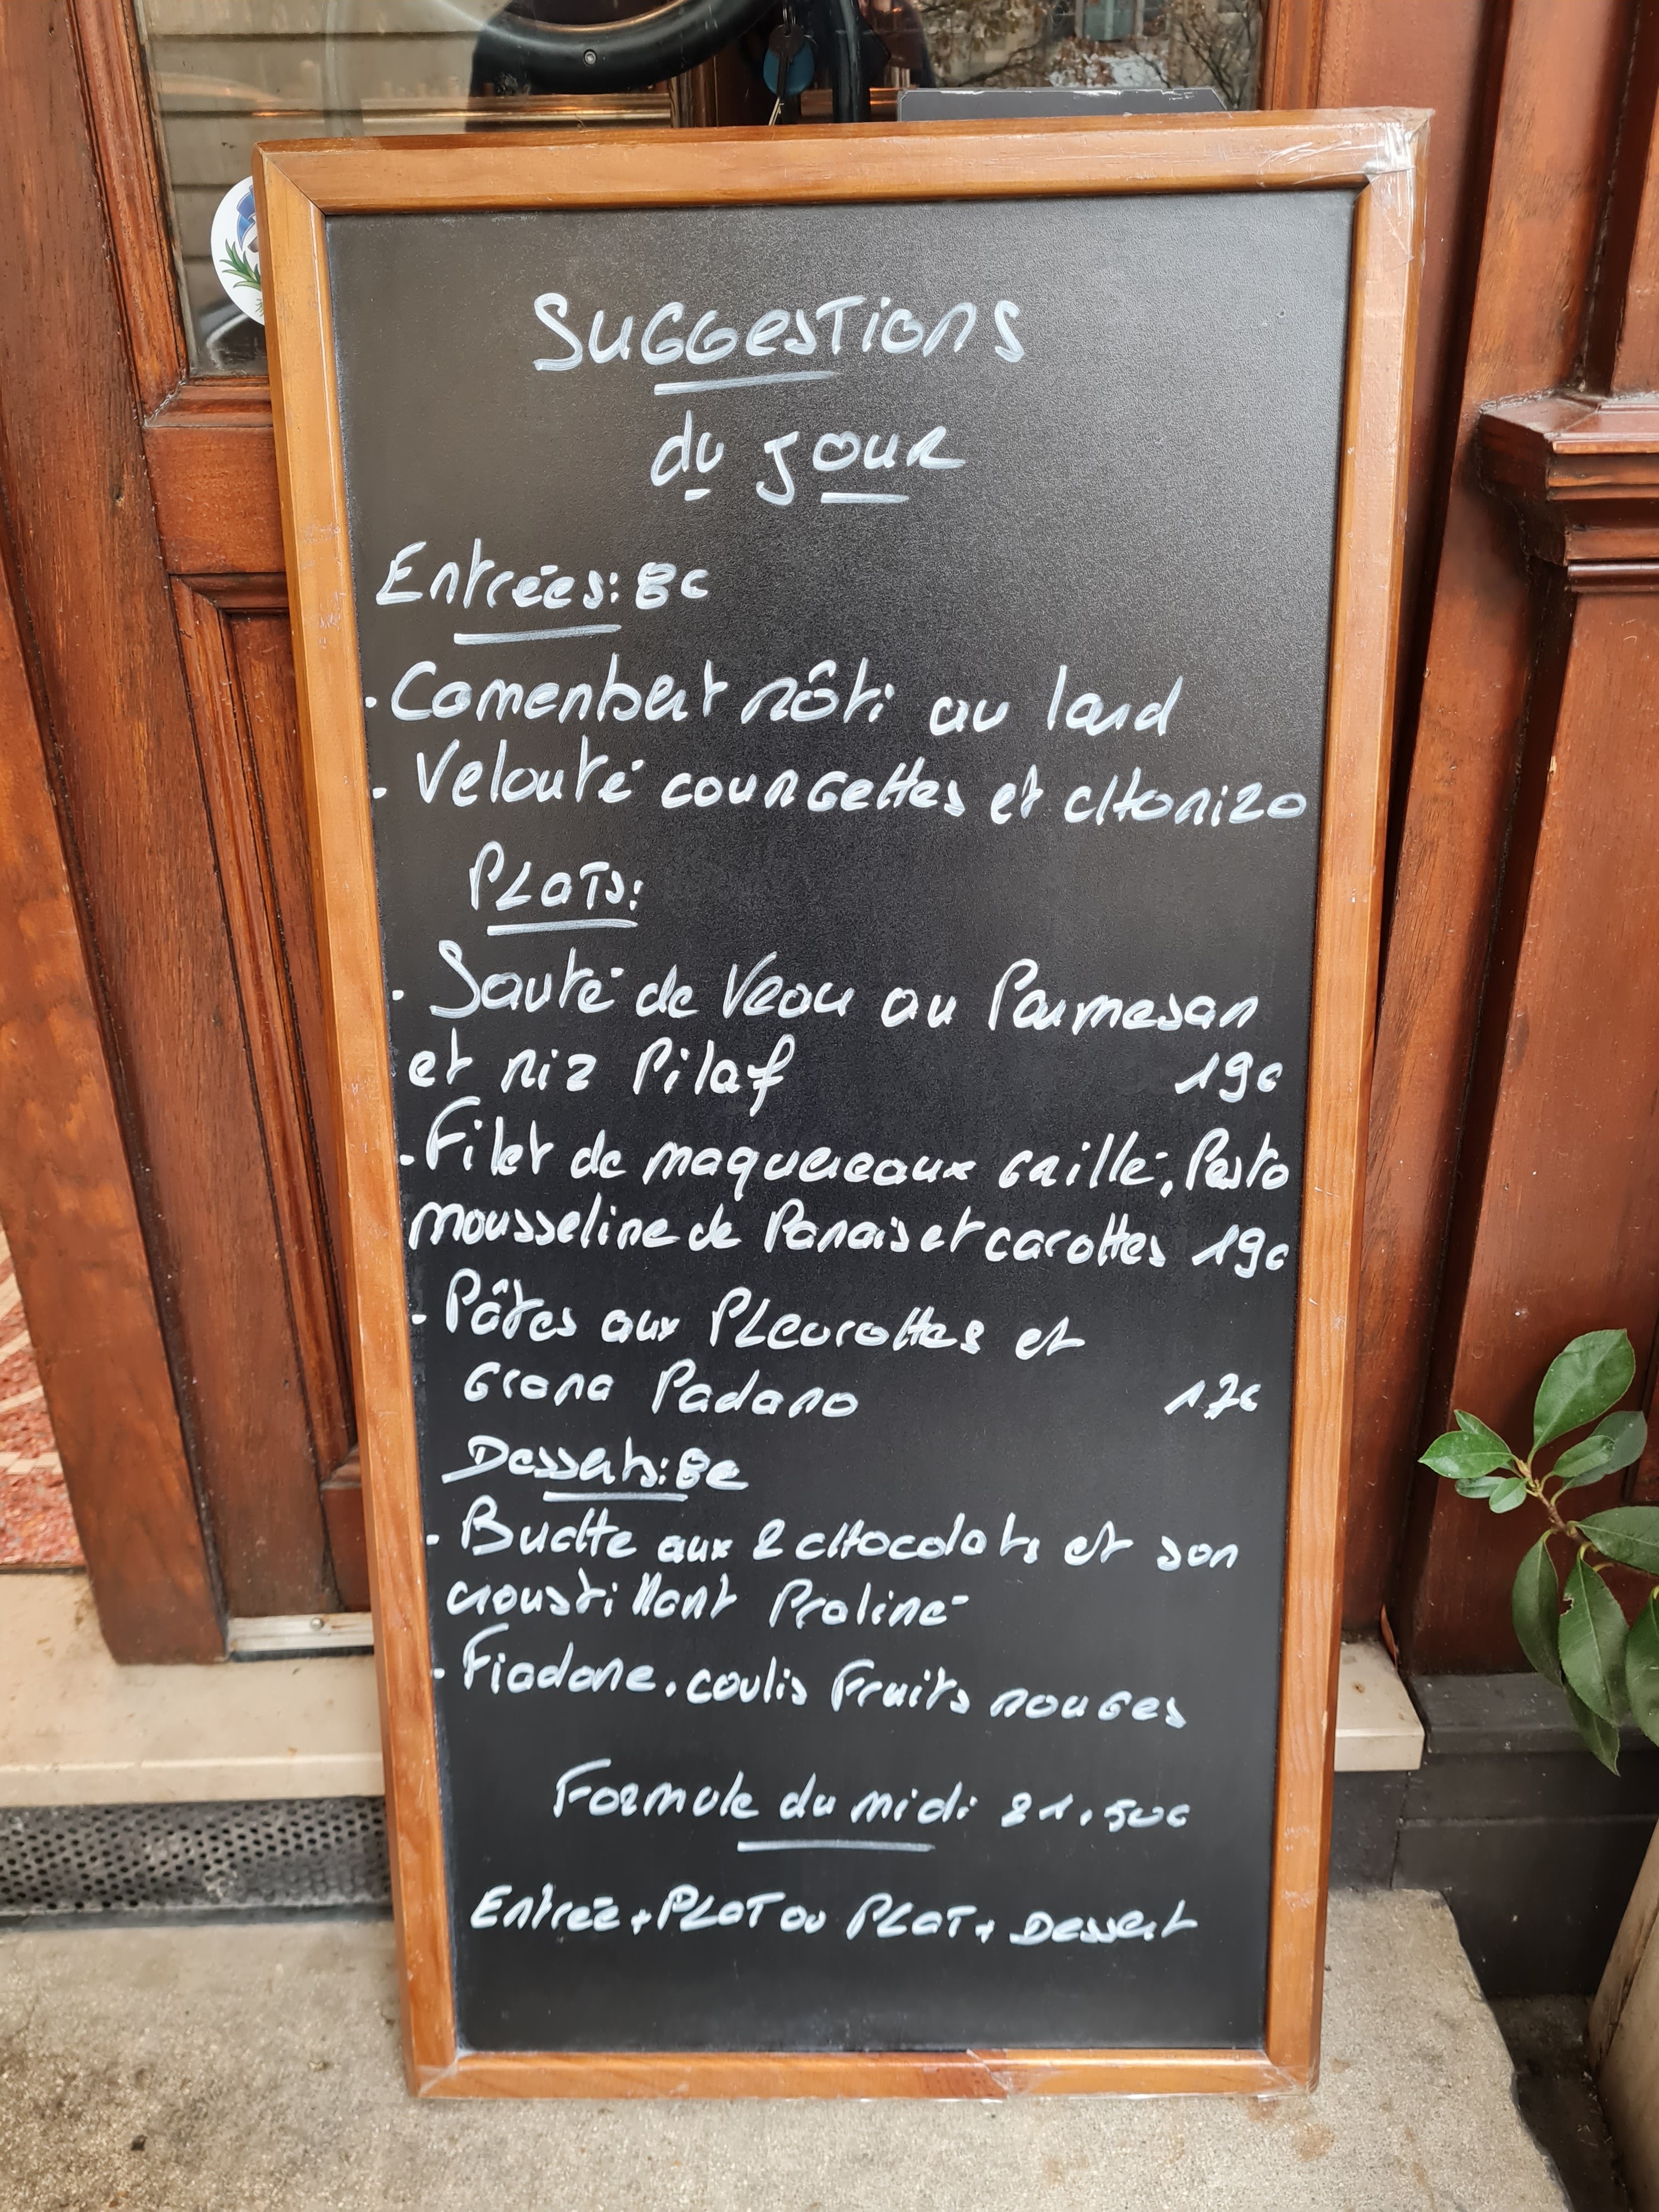 Suggestions
du jour
Entrées: 8€
. Camenbert rôti au lard
. Velouté courgettes et chorizo
Plats:
. Sauté de Veau au Parmesan
et riz Pilaf 19€
. Filet de maquereaux grillé, Pesto
mousseline de Panais et carottes 19€
. Pâtes aux Pleurottes et
Grana Padano 17€
Desserts: 8€
. Buche aux 2 chocolats et son
croustillant Praliné
. Fiadone, coulis Fruits rouges
Formule du midi 21,50€
Entrée + Plat ou Plat + Dessert